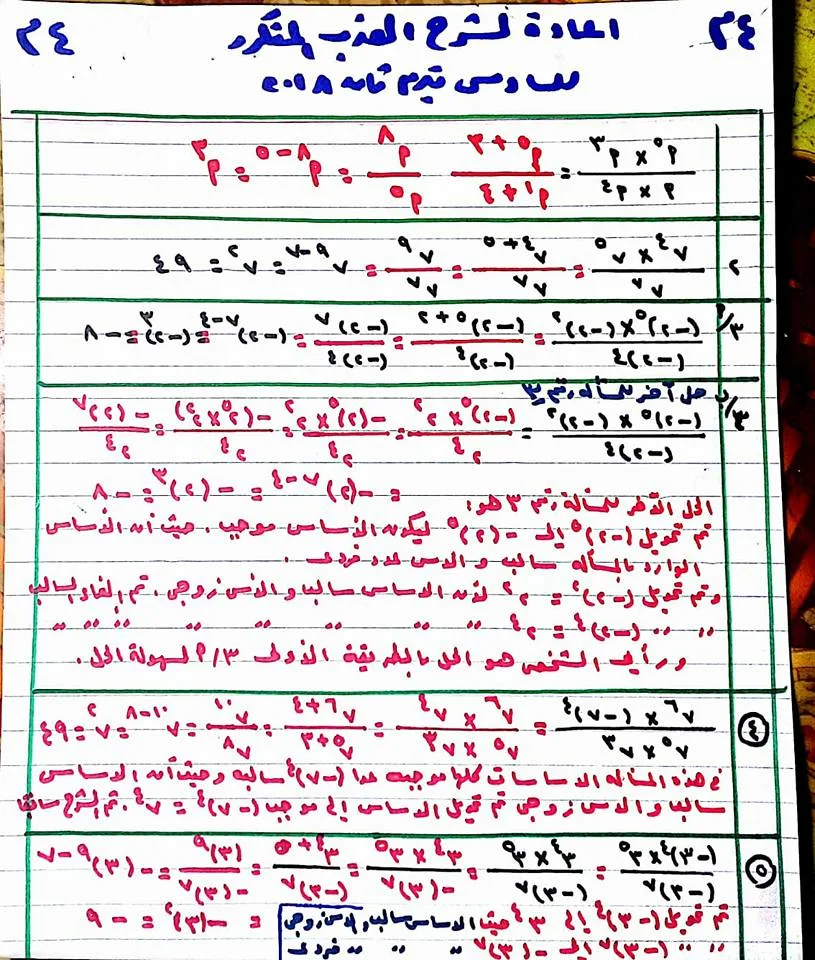 ٣٤ اعادة لشرح الضرب المتكرر ٣٤
للسادس تيرم ثانه ٢٠١٨
أ٥ × أ٣ / أ × أ٤ = أ٥+٣ / أ١+٤ أ٨ / أ٥ = أ٨-٥ = أ٣
٢ ٧٤ × ٧٥ / ٧٧ = ٧٤+٥ / ٧٧ = ٧٩ / ٧٧ = ٧٩-٧ = ٧٢ = ٤٩
٣/أ (-٢)٥ × (-٢)٢ / (-٢)٤ = (-٢)٥+٢ / (-٢)٤ = (-٢)٧ / (-٢)٤ = (-٢)٧-٤ = (-٢)٣ = -٨
٣/ب حل آخر للمسألة رقم ٣
(-٢)٥ × (-٢)٢ / (-٢)٤ = (-٢)٥ × ٢٢ / ٢٤ = -(٢)٥ × ٢٢ / ٢٤ = -(٢٥ × ٢٢) / ٢٤ = -(٢)٧ / ٢٤
= -(٢)٧-٤ = -(٢)٣ = -٨
الحل الآخر للمسألة رقم ٣ هو:
تم تحويل (-٢)٥ إلى -(٢)٥ ليكون الأساس موجبا. حيث أن الأساس
الوارد بالمسأله سالب و الاس عدد فردى.
وتم تحويل (-٢)٢ = ٢٢ لأن الاساس سالبا و الأس زوجى. تم إلغاء السالب
،، ،، (-٢)٤ = ٢٤ ،، ،، ،، ،، ،، ،، ،، ،،
ورأيى الشخصى هو الحل بالطريقة الأولى ٣/أ لسهولة الحل.
٤ ٧٦ × (-٧)٤ / ٧٥ × ٧٣ = ٧٦ × ٧٤ / ٧٥ × ٧٣ = ٧٦+٤ / ٧٥+٣ = ٧١٠ / ٧٨ = ٧١٠-٨ = ٧٢ = ٤٩
فى هذه المسأله الاساسات كلها موجبه عدا (-٧)٤ سالبه وحيث أن الاساس
سالبا و الاس زوجى تم تحويل الاساس إلى موجب (-٧)٤ = ٧٤. تم الشرح سابقا
٥ (-٣)٤ × ٣٥ / (-٣)٧ = ٣٤ × ٣٥ / (-٣)٧ = ٣٤ × ٣٥ / -(٣)٧ = ٣٤+٥ / (-٣)٧ = (٣)٩ / -(٣)٧ = -(٣)٩-٧
تم تحويل (-٣)٤ إلى ٣٤ حيث الاساس سالب والاس زوجى = -(٣)٢ = -٩
،، ،، (-٣)٧ إلى -(٣)٧ ،، ،، ،، فردى